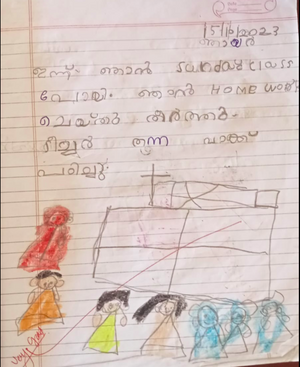 15/10/2023
ഞായർ
ഇന്ന് ഞാൻ sunday class
പോയി. ഞാൻ HOME WORK
ചെയ്തു തീർത്തു.
ടീച്ചർ തന്ന വാക്ക്
പഠിച്ചു.